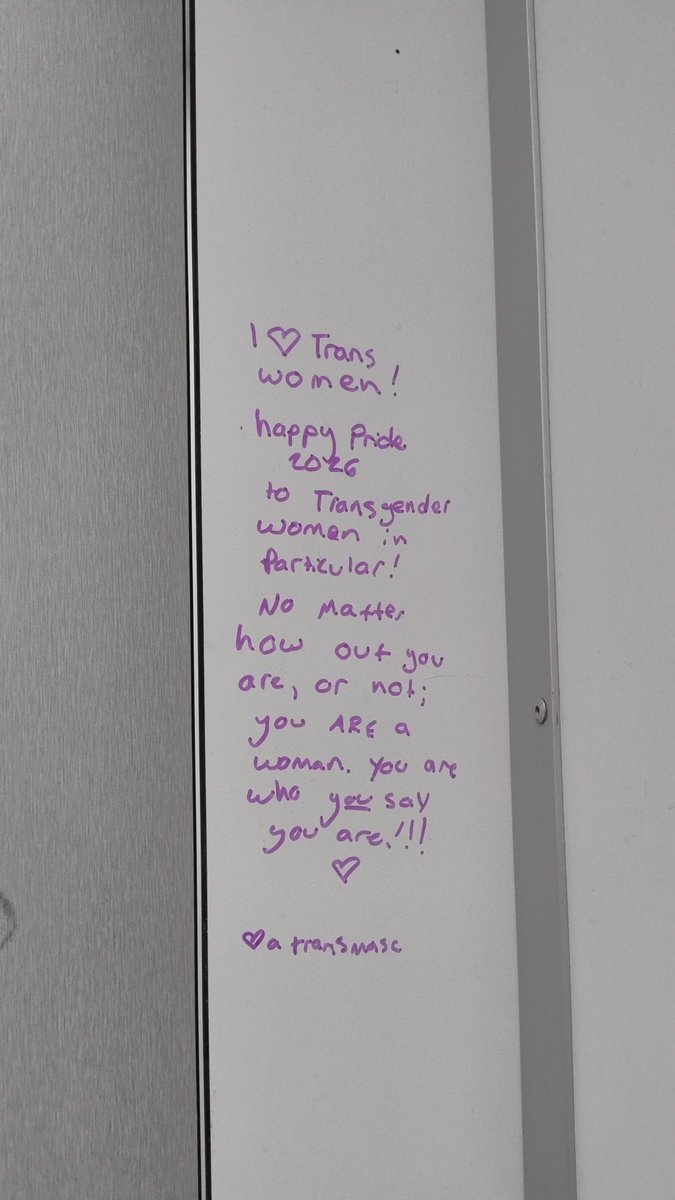 I ♡ Trans
women!
happy Pride
2026
to Transgender
women in
Particular!
No Matter
how out you
are, or not;
you ARE a
woman. You are
who you say
you are!!!
♡
♥a transmasc